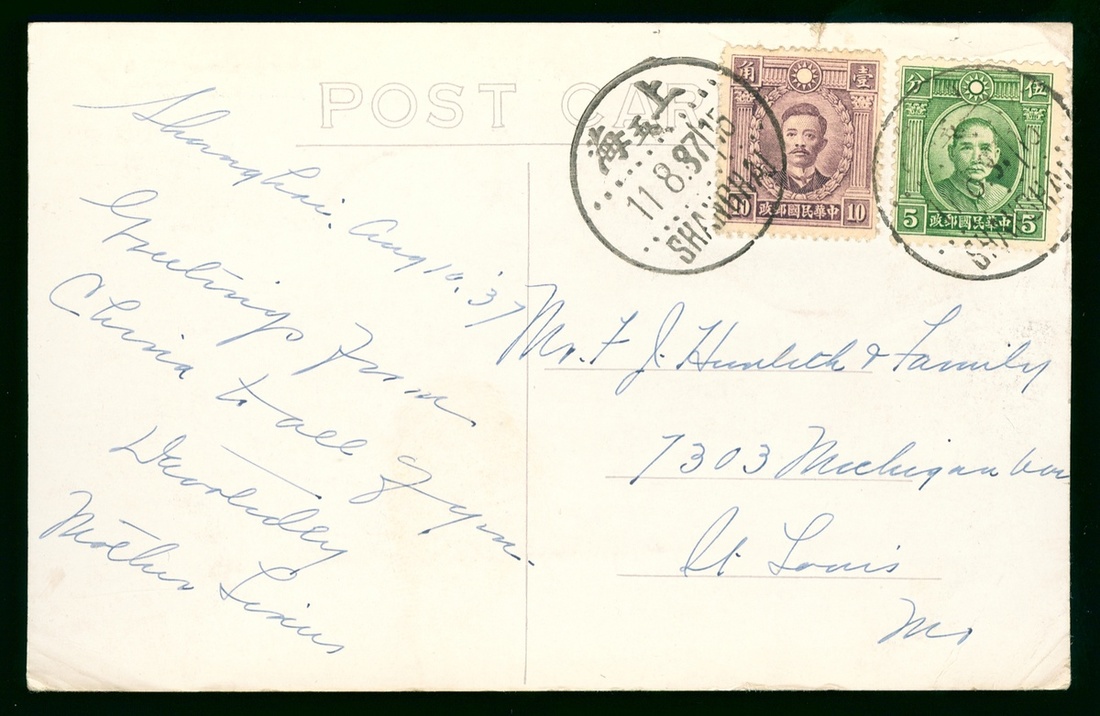 POST CAR
上海
11.8.37/15
SHANGHAI
角 壹
10 政郵國民華中 10
分 伍
5 政郵國民華中 5
SHANGHAI
Shanghai. Aug 10, 37
Greetings from
China to all of you.
Mother
Mr. F J. & Family
7303 Michigan
St Louis
Mo